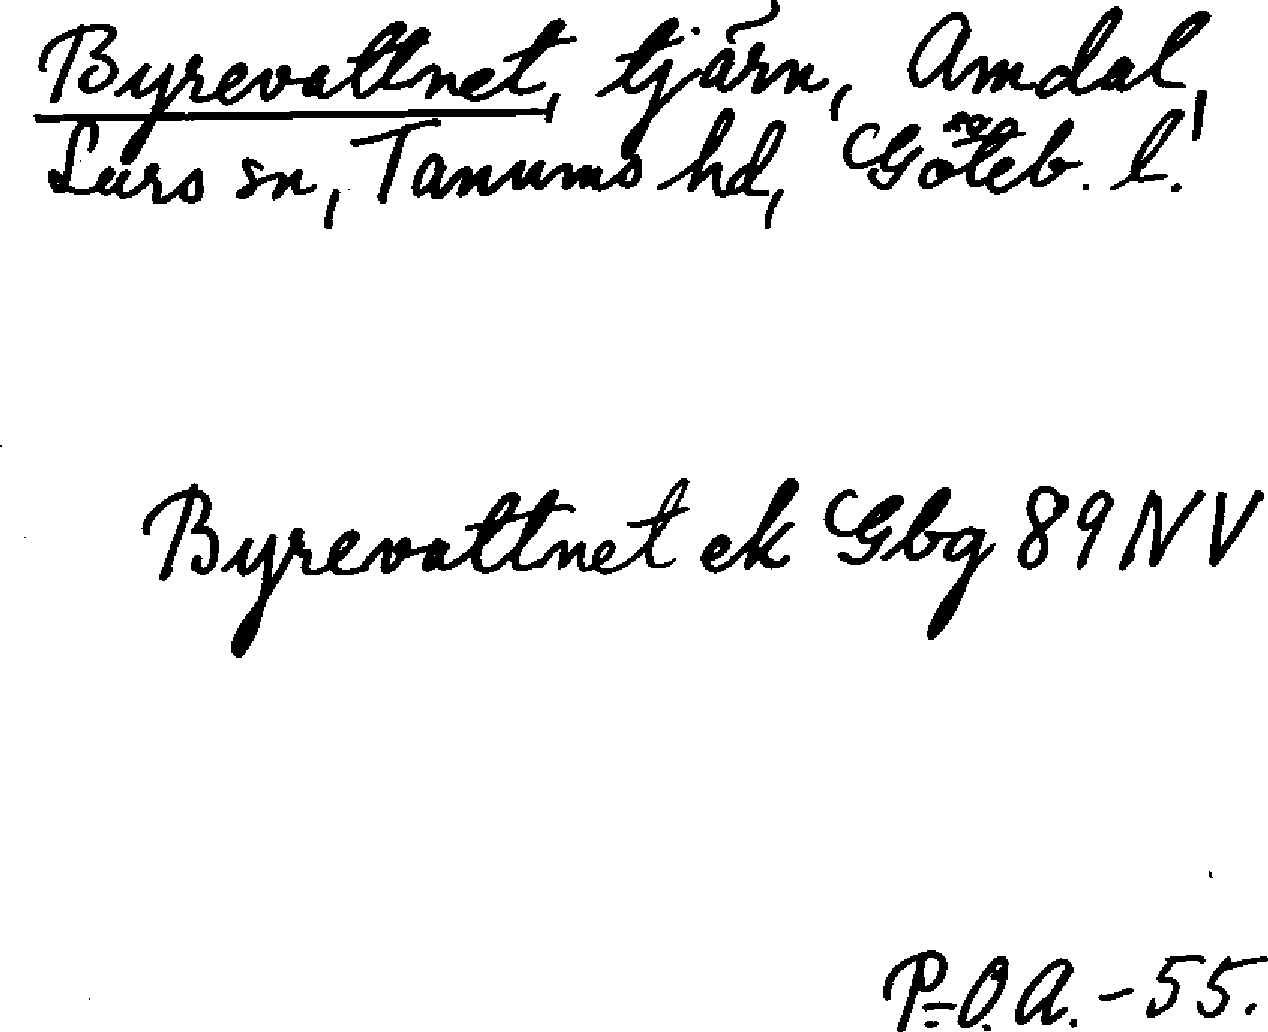 Byrevattnet, tjärn, Amdal,
Lurs sn, Tanums hd, Göteb. l.
Byrevattnet ek Gbg 89 NV
P.-O. A. - 55.